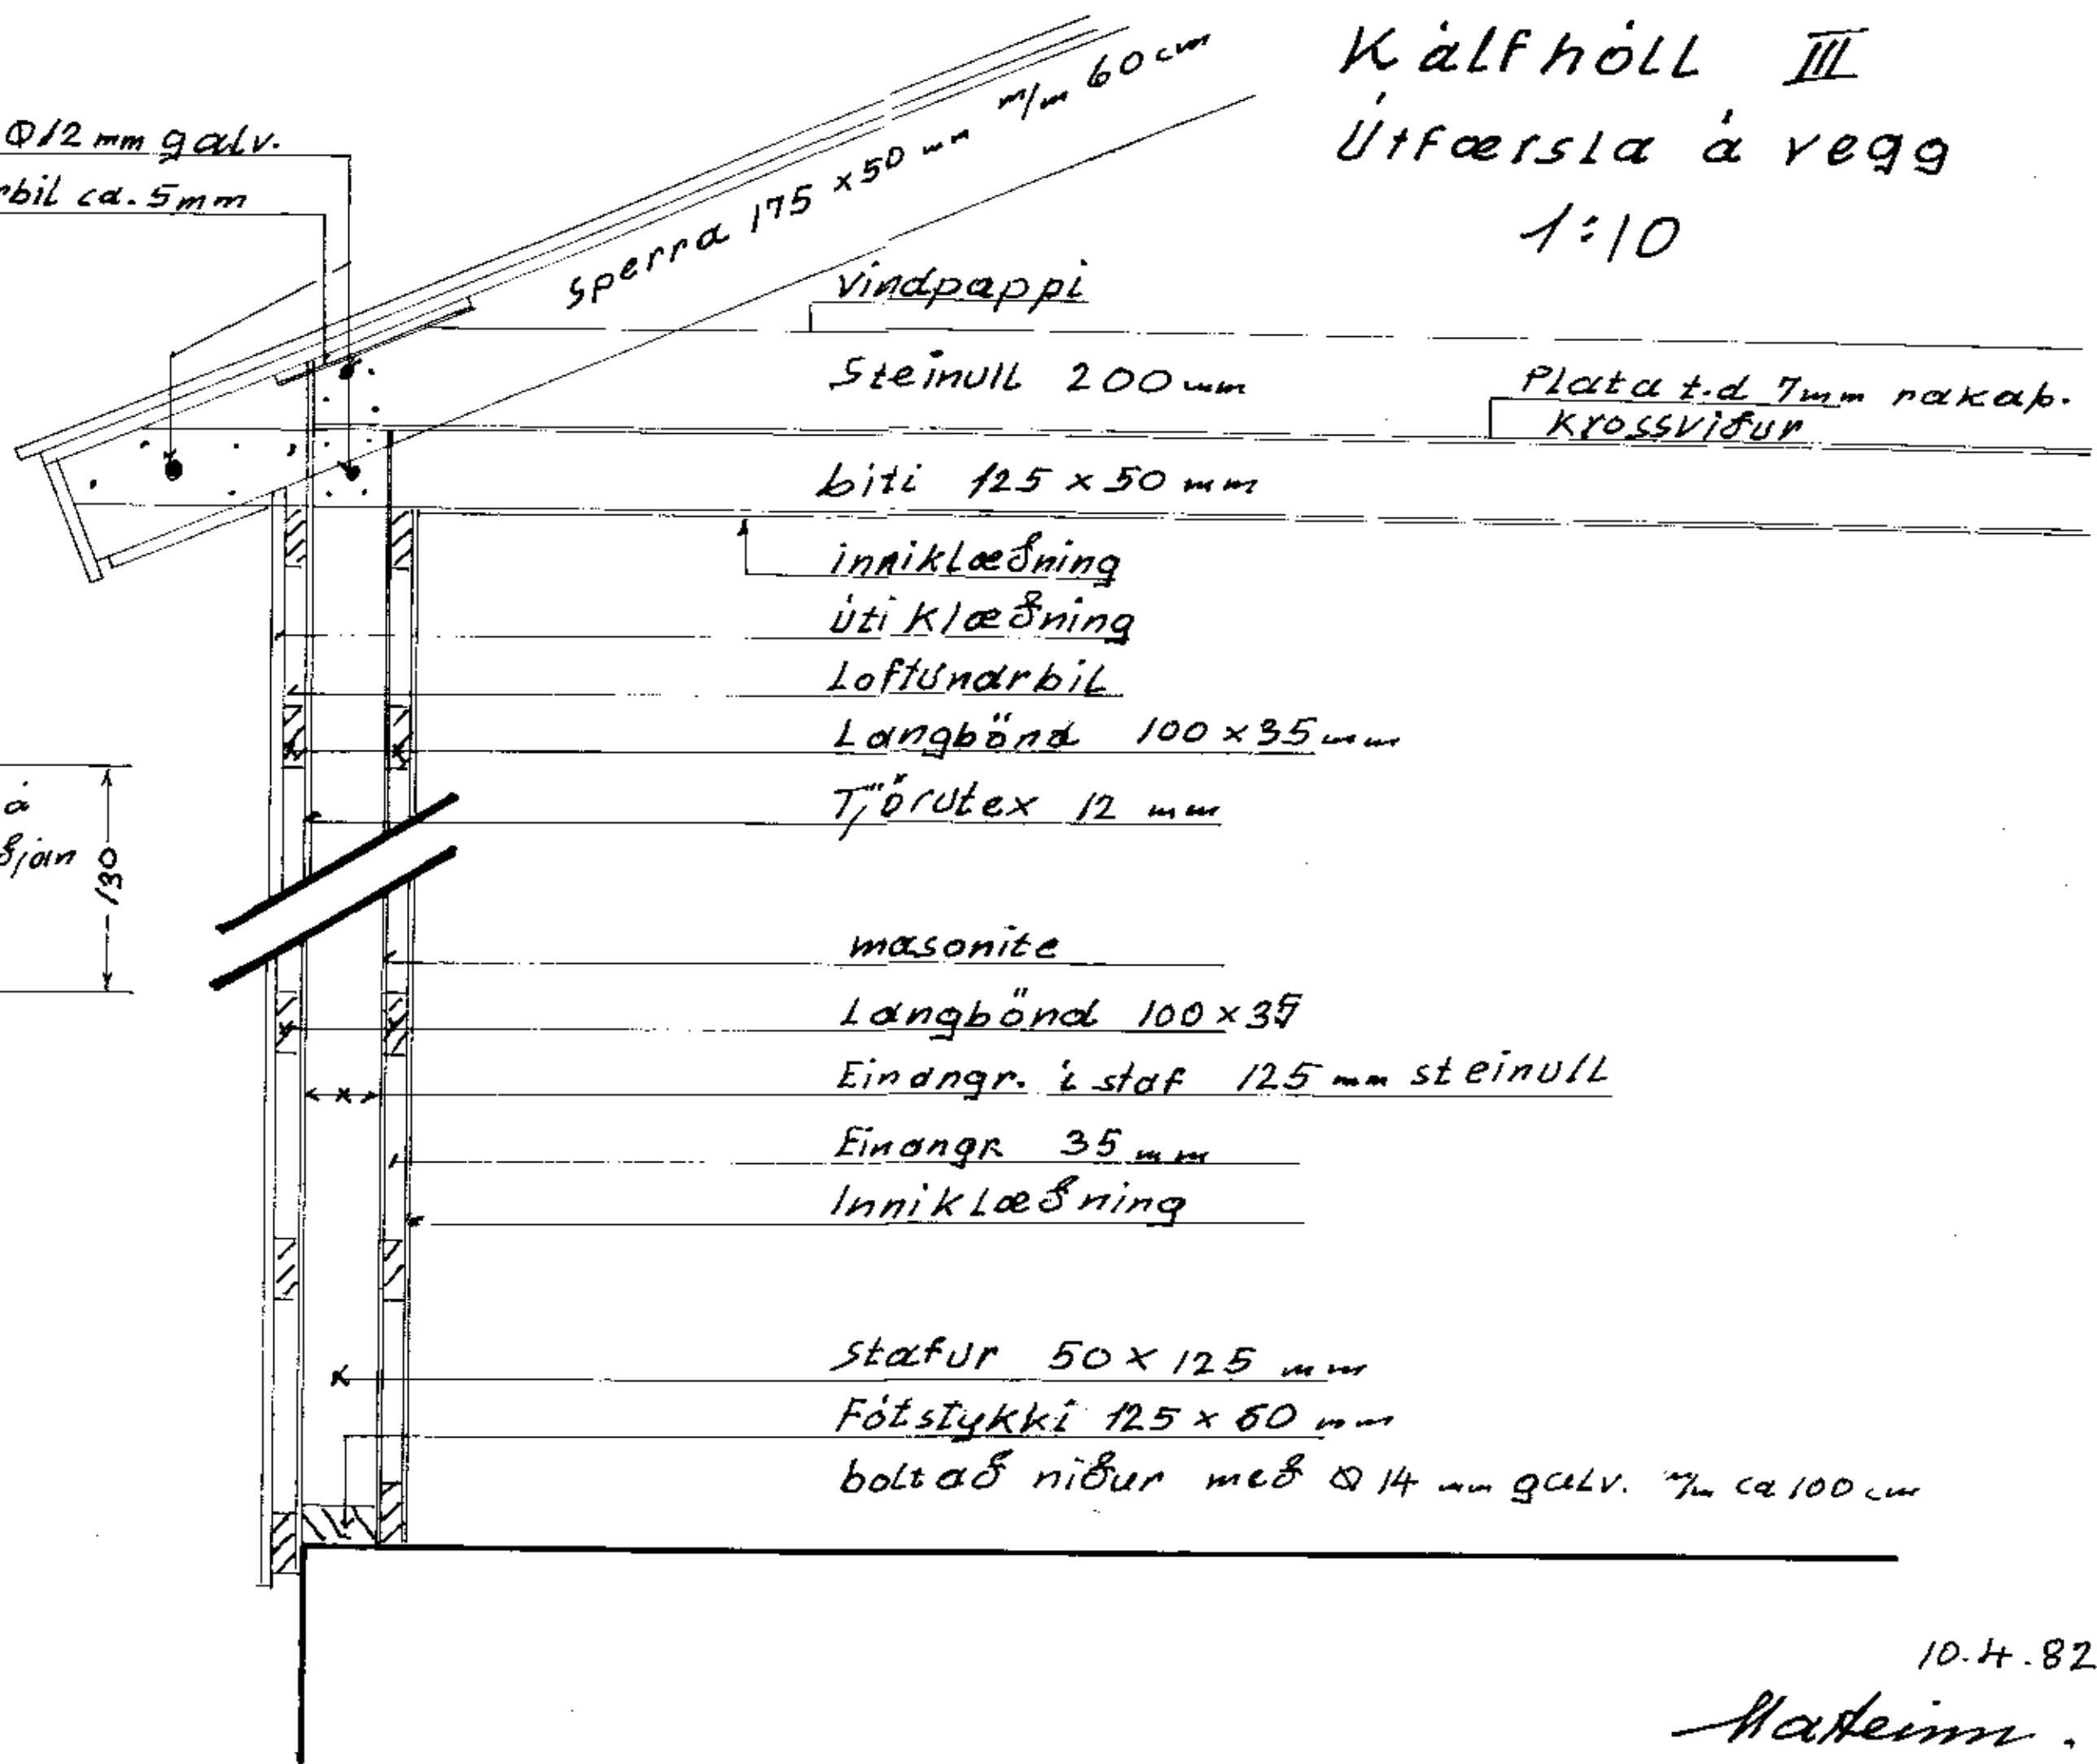 Kálfhóll III
Útfærsla á vegg
1:10
Φ12 mm galv.
rbil ca. 5 mm
sperra 175 x 50 mm m/m 60 cm
vindpappi
Steinull 200 mm
Plata t.d 7mm rakaþ.
krossviður
biti 125 x 50 mm
inniklæðning
úti klæðning
Loftunarbil
Langbönd 100 x 35 mm
Tjörutex 12 mm
á
ðjan
130
masonite
Langbönd 100 x 35
Einangr. í staf 125 mm steinull
Einangr 35 mm
Inniklæðning
Stafur 50 x 125 mm
Fótstykki 125 x 60 mm
boltað niður með Φ 14 mm galv. m/m ca 100 cm
10.4.82